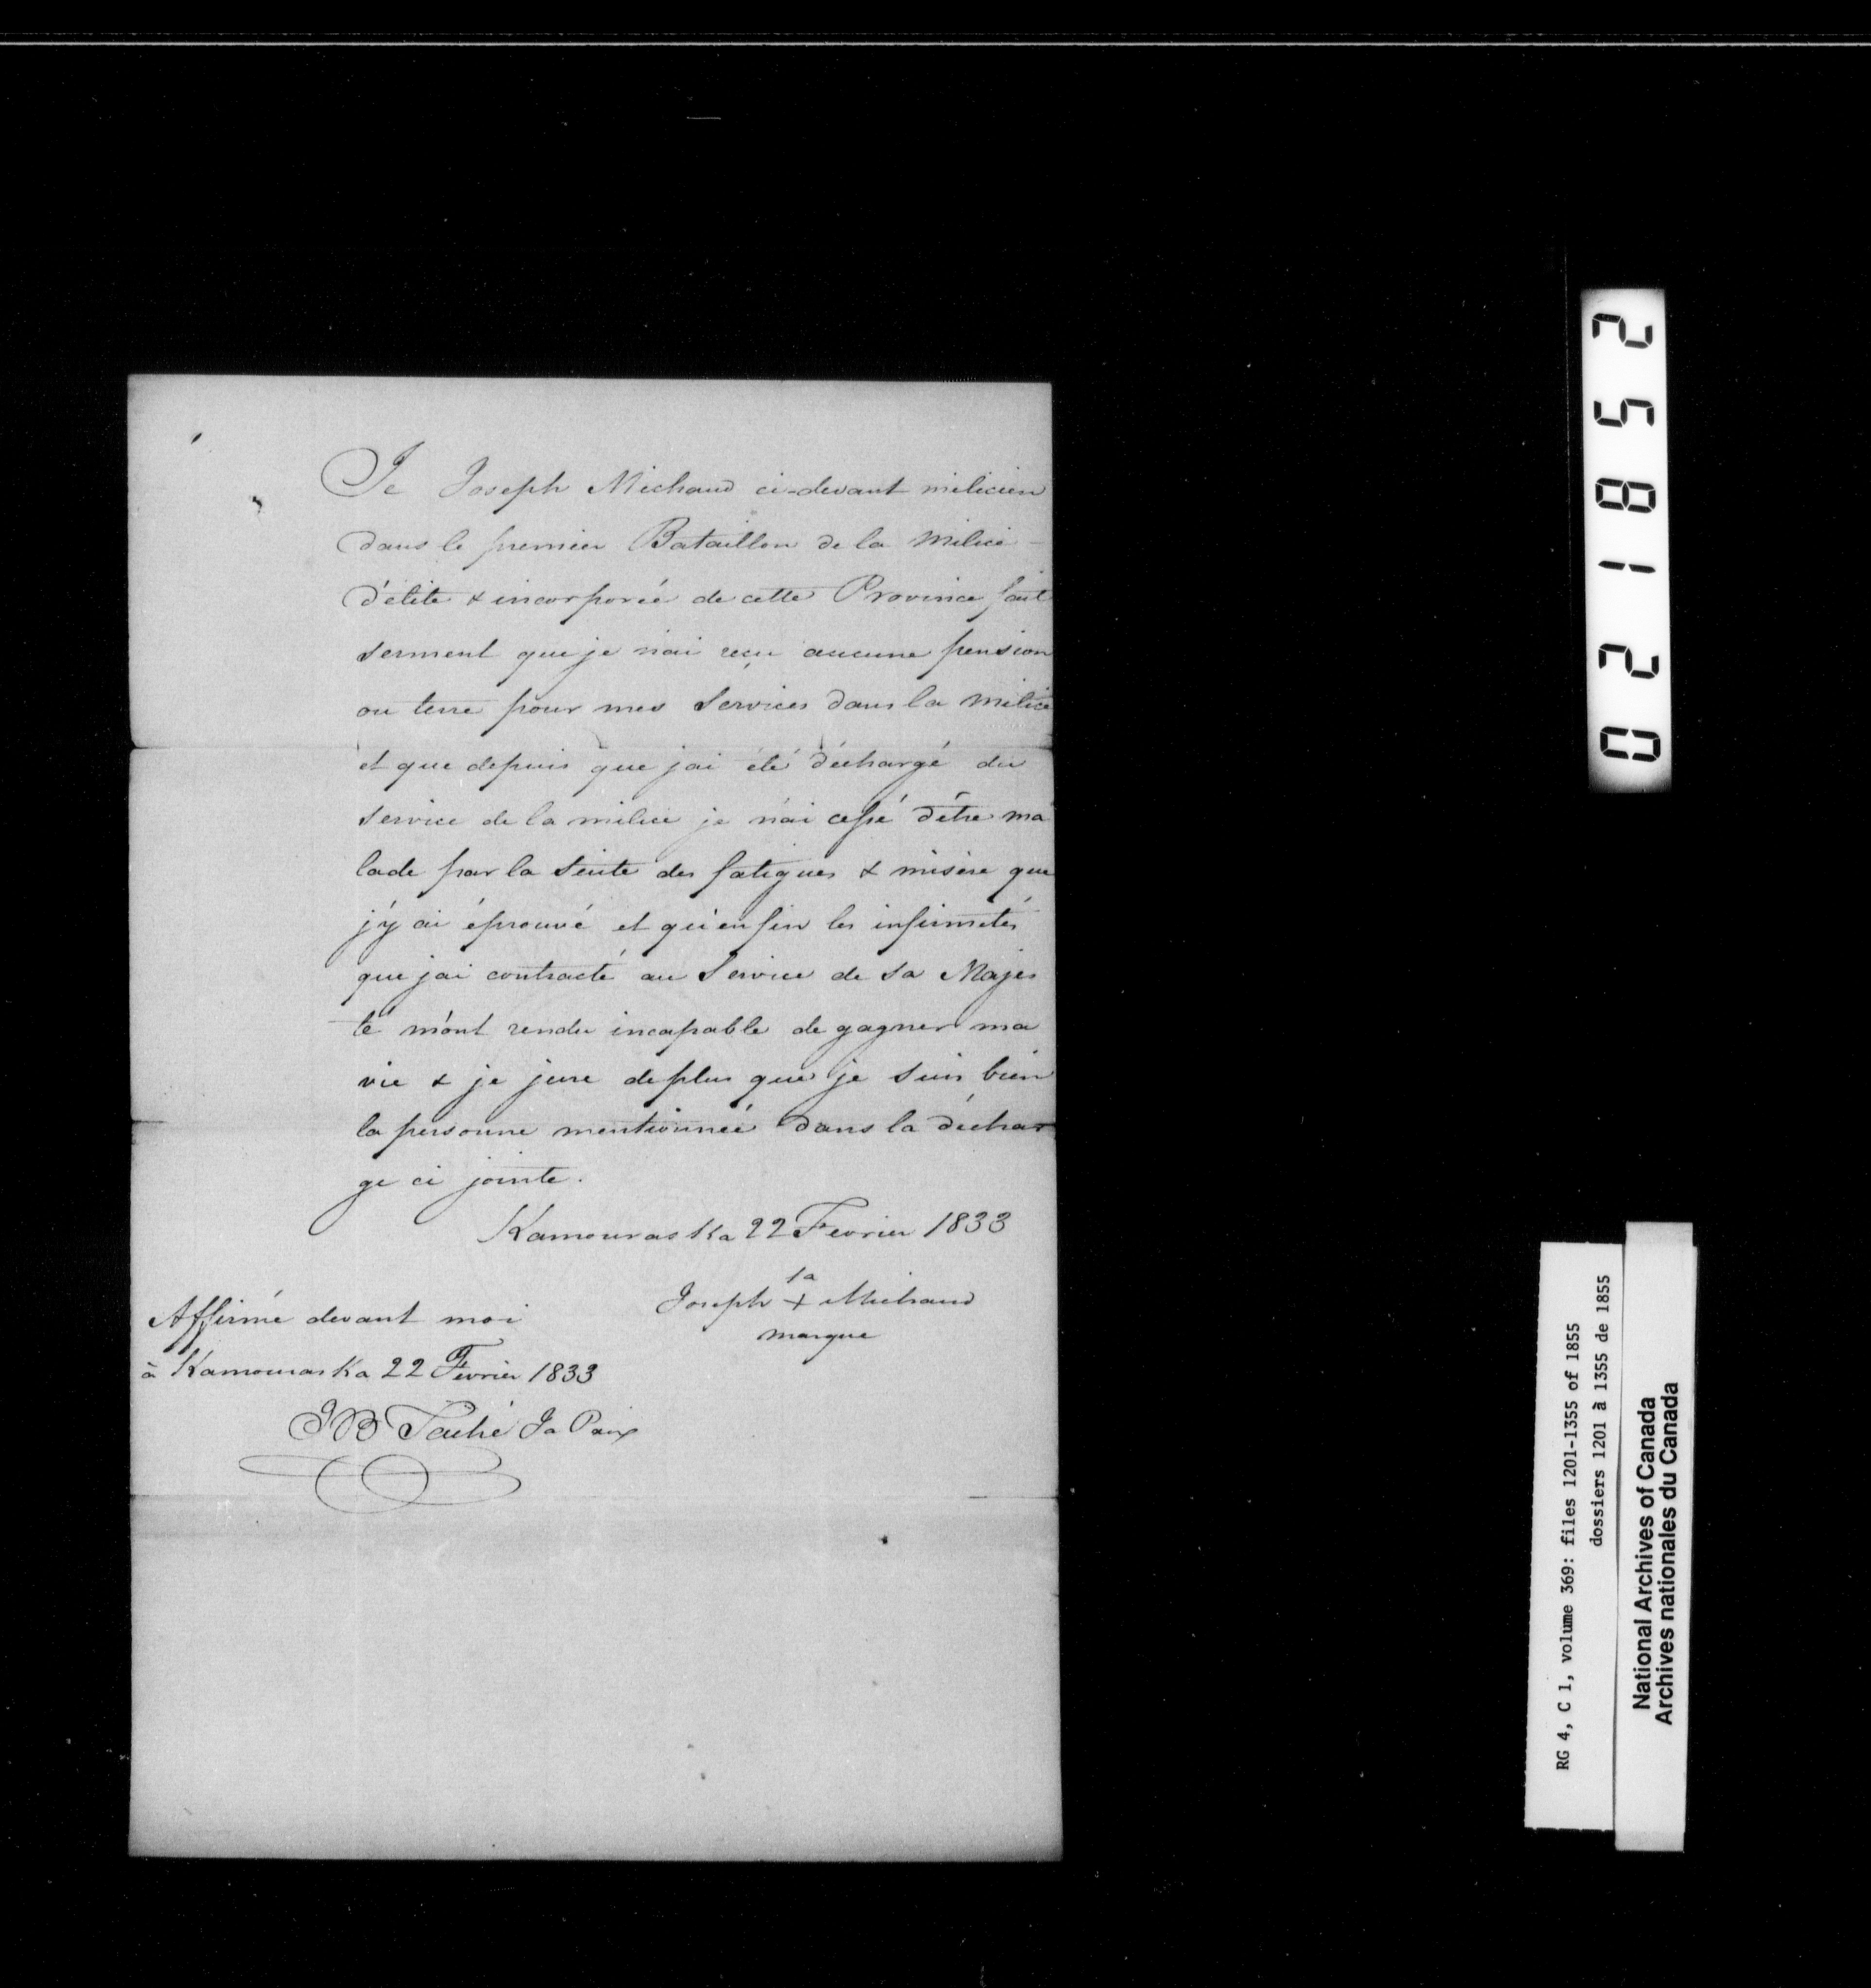 Je Joseph Michaud ci-devant milicien
dans le premier Bataillon de la Milice
d'élite & incorporée de cette Province fait
serment que je n'ai reçu aucune pension
ou terre pour mes services dans la milice
et que depuis que jai été déchargé du
service de la milice je n'ai cessé d'être ma
lade par la suite des fatigues & misère que
j'y ai éprouvé et qu'enfin les infirmités
que jai contracté au Service de Sa Majes
té m'ont rendu incapable de gagner ma
vie & je jure de plus que je suis bien
la personne mentionnée dans la déchar
ge ci jointe.
Kamouraska 22 Fevrier 1833
la
Joseph + Michaud
marque
Affirmé devant moi
à Kamouraska 22 Fevrier 1833
JB Taché Ja Paix
021852
RG 4, C 1, volume 369: files 1201-1355 of 1855
dossiers 1201 à 1355 de 1855
National Archives of Canada
Archives nationales du Canada